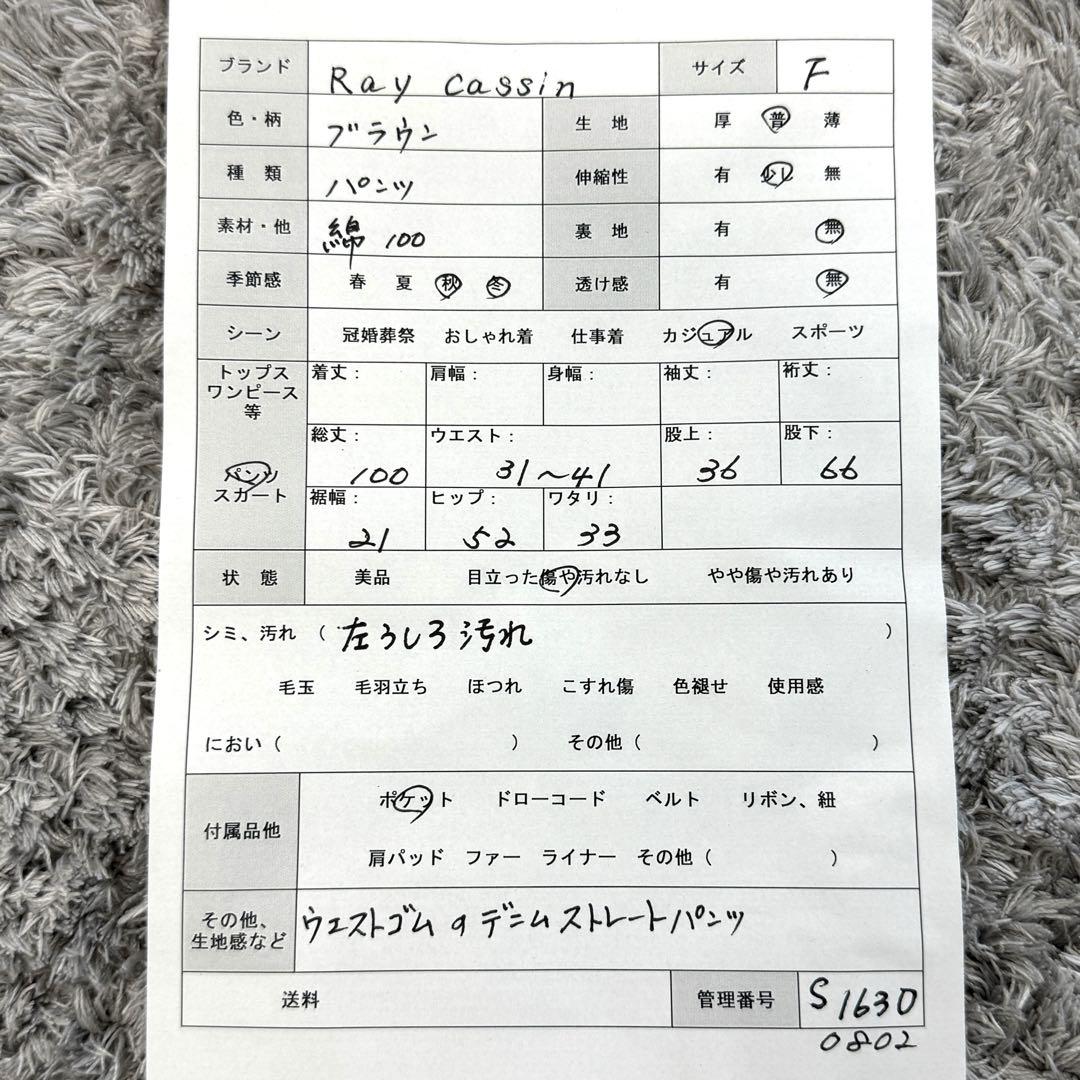 ブランド Ray cassin サイズ F
色・柄 ブラウン 生 地 厚 普 薄
種 類 パンツ 伸縮性 有 少し 無
素材・他 綿 100 裏 地 有 無
季節感 春 夏 秋 冬 透け感 有 無
シーン 冠婚葬祭 おしゃれ着 仕事着 カジュアル スポーツ
トップス
ワンピース
等
着丈： 肩幅： 身幅： 袖丈： 裄丈：
パンツ
スカート
総丈： ウエスト： 股上： 股下：
100 31〜41 36 66
裾幅： ヒップ： ワタリ：
21 52 33
状 態 美品 目立った傷や汚れなし やや傷や汚れあり
シミ、汚れ （ 左うしろ汚れ ）
毛玉 毛羽立ち ほつれ こすれ傷 色褪せ 使用感
におい（ ） その他（ ）
付属品他 ポケット ドローコード ベルト リボン、紐
肩パッド ファー ライナー その他（ ）
その他、
生地感など
ウエストゴムのデニムストレートパンツ
送料 管理番号 S1630
0802